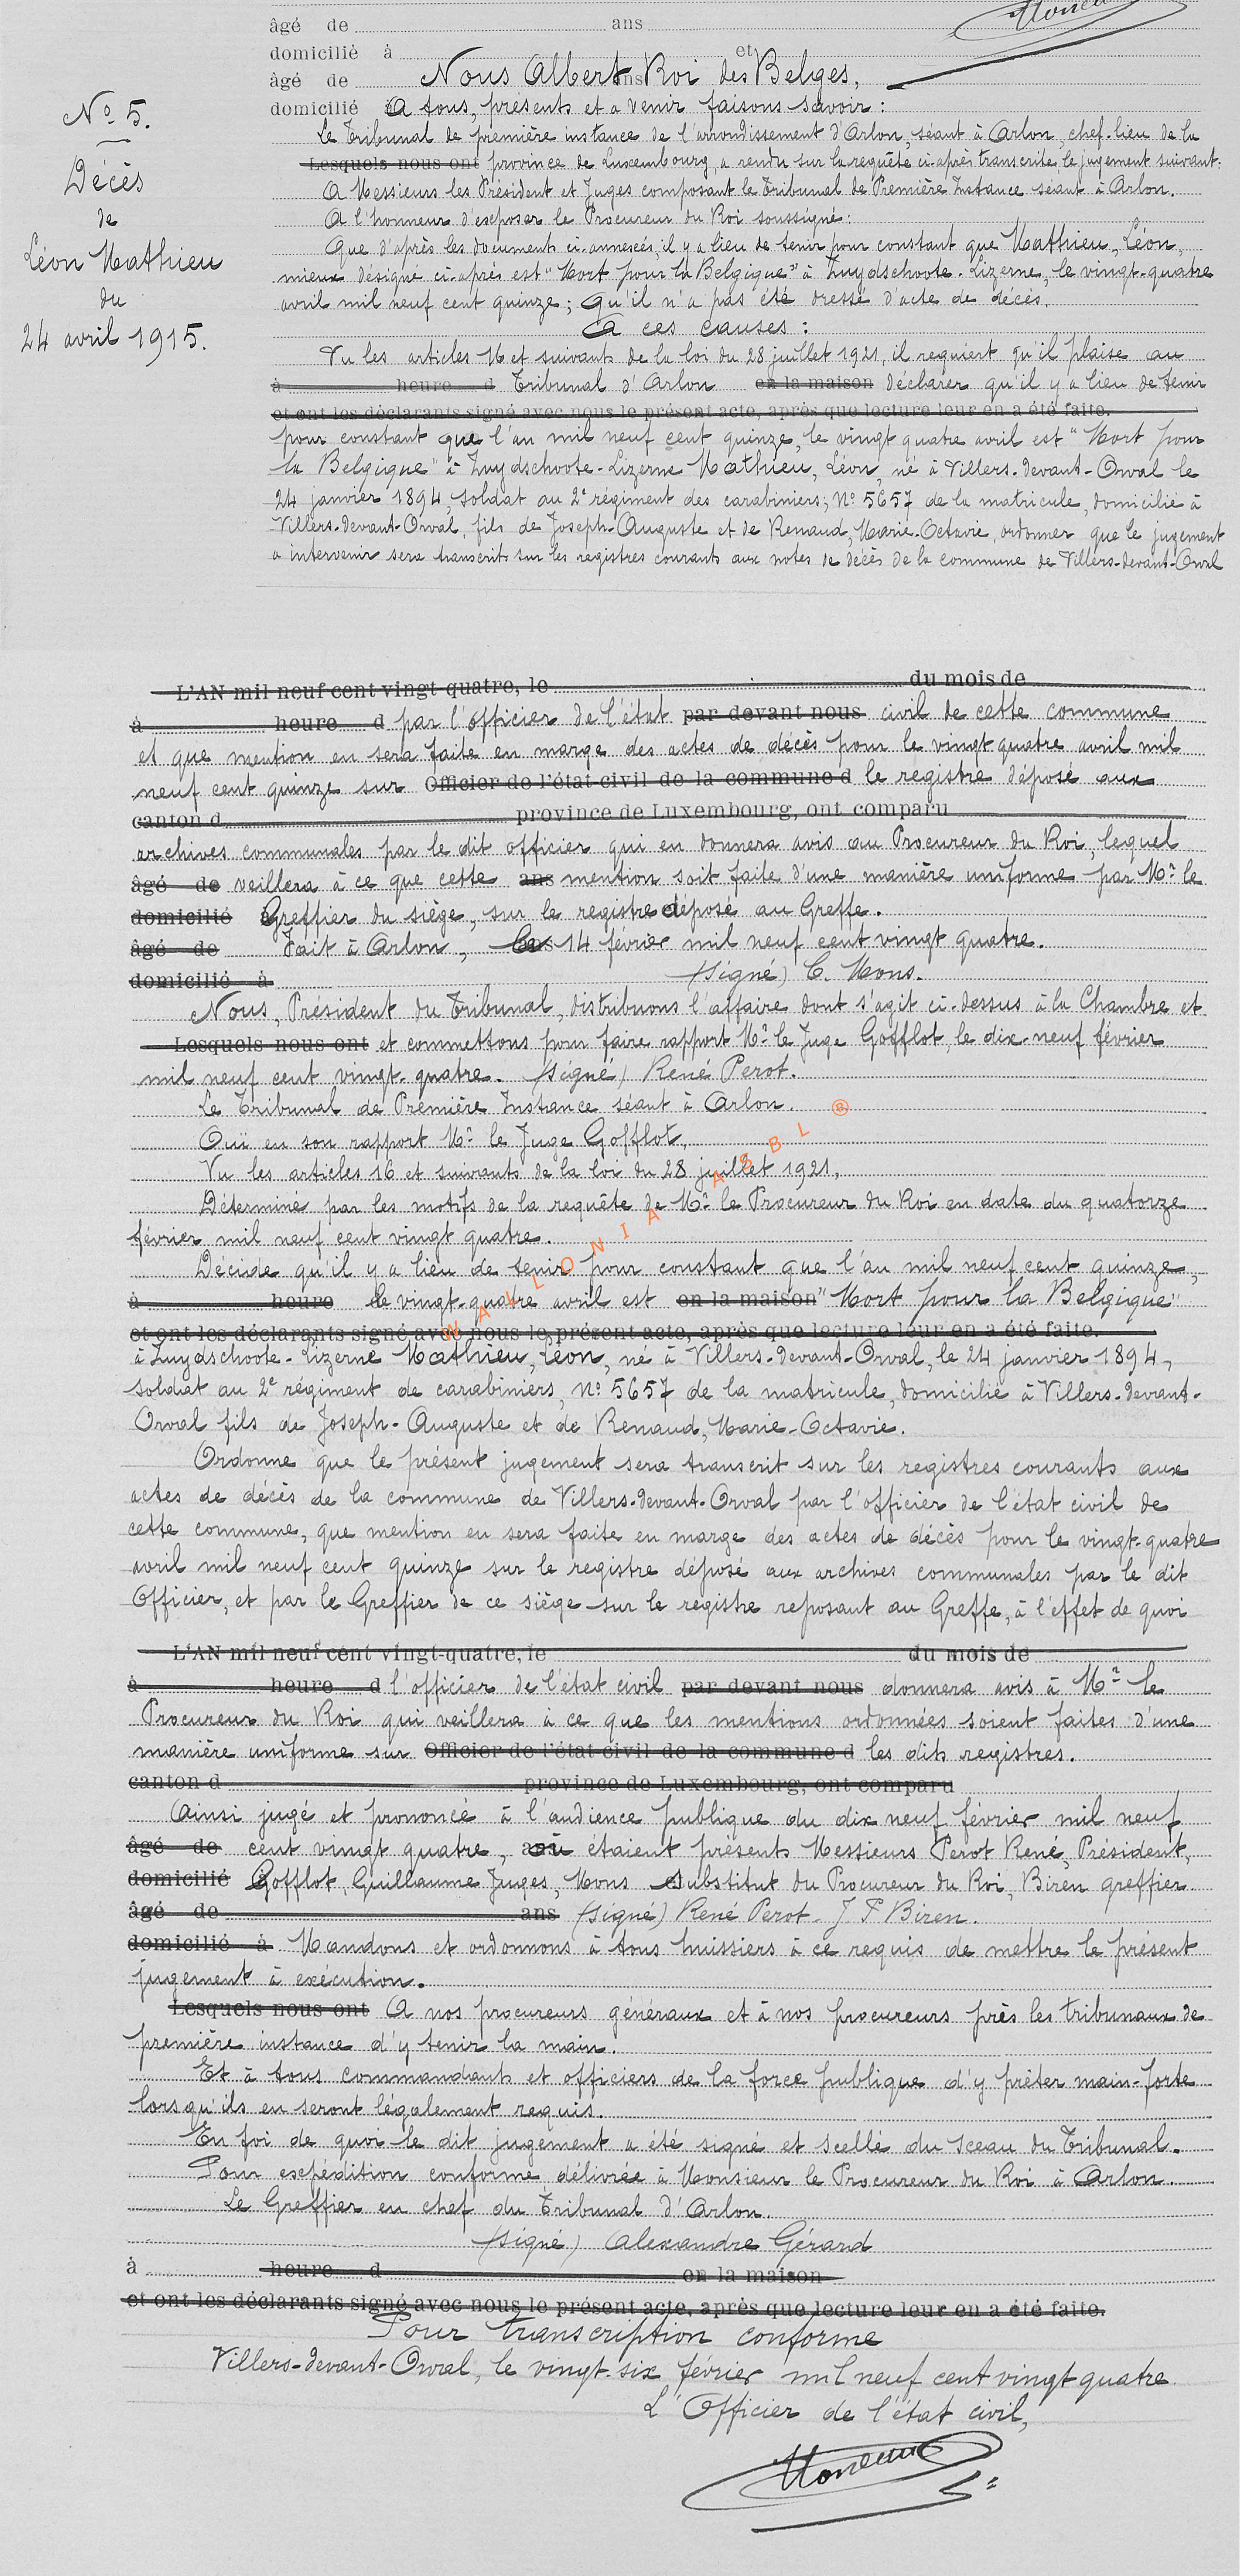 âgé de ans
domicilié à et
âgé de Nous Albert ans Roi des Belges,
domicilié A tous, présents et a venir faisons savoir :
N° 5.
Décès
de
Léon Mathieu
du
24 avril 1915.
Le Tribunal de première instance de l'arrondissement d'Arlon, séant à Arlon, chef-lieu de la
Lesquels nous ont province de Luxembourg, a rendu sur la requête ci-après transcrite le jugement suivant:
A Messieurs les Président et Juges composant le Tribunal de Première Instance séant à Arlon.
A l'honneur d'exposer le Procureur du Roi soussigné:
Que d'après les documents ci-annexés, il y a lieu de tenir pour constant que Mathieu, Léon,
mieux désigné ci-après est "Mort pour la Belgique" à Zuydschoote-Lizerne, le vingt-quatre
avril mil neuf cent quinze; qu'il n'a pas été dressé d'acte de décès.
A ces causes :
Vu les articles 16 et suivants de la loi du 28 juillet 1921, il requiert qu'il plaise au
à heure d Tribunal d'Arlon en la maison déclarer qu'il y a lieu de tenir
et ont les déclarants signé avec nous le présent acte, après que lecture leur en a été faite.
pour constant que l'an mil neuf cent quinze, le vingt quatre avril est "Mort pour
la Belgique" à Zuydschoote-Lizerne Mathieu, Léon, né à Villers-devant-Orval le
24 janvier 1894, soldat au 2e régiment des carabiniers; N° 5657 de la matricule, domicilié à
Villers-devant-Orval, fils de Joseph-Auguste et de Renaud, Marie-Octavie, ordonner que le jugement
a intervenir sera transcrits sur les registres courants aux notes de décès de la commune de Villers-devant-Orval
L'AN mil neuf cent vingt-quatre, le du mois de
à heure d par l'officier de l'état par devant nous civil de cette commune
et que mention en sera faite en marge des actes de décès pour le vingt quatre avril mil
neuf cent quinze sur Officier de l'état civil de la commune d le registre déposé aux
canton d province de Luxembourg, ont comparu
archives communales par le dit officier qui en donnera avis au Procureur du Roi, lequel
âgé de veillera à ce que cette ans mention soit faite d'une manière uniforme par Mr le
domicilié Greffier du siège, sur le registre déposé au Greffe.
âgé de Fait à Arlon, le 14 février mil neuf cent vingt quatre.
domicilié à (signé) C. Mons.
Nous, Président du Tribunal, distribuons l'affaire dont s'agit ci-dessus à la Chambre et
Lesquels nous ont et commettons pour faire rapport Mr le Juge Gofflot, le dix-neuf février
mil neuf cent vingt-quatre. (signé) René Perot.
Le Tribunal de Première Instance séant à Arlon.
Ouï en son rapport Mr le Juge Gofflot,
Vu les articles 16 et suivants de la loi du 28 juillet 1921,
Déterminé par les motifs de la requête de Mr le Procureur du Roi en date du quatorze
février mil neuf cent vingt quatre.
Décide qu'il y a lieu de tenir pour constant que l'an mil neuf cent quinze,
à heure le vingt-quatre avril est en la maison "Mort pour la Belgique"
et ont les déclarants signé avec nous le présent acte, après que lecture leur en a été faite.
WALLONIA ASBL ®
à Zuydschoote-Lizerne Mathieu, Léon, né à Villers-devant-Orval, le 24 janvier 1894,
soldat au 2e régiment de carabiniers, N° 5657 de la matricule, domicilié à Villers-devant-
Orval fils de Joseph-Auguste et de Renaud, Marie-Octavie.
Ordonne que le présent jugement sera transcrit sur les registres courants aux
actes de décès de la commune de Villers-devant-Orval par l'officier de l'état civil de
cette commune, que mention en sera faite en marge des actes de décès pour le vingt-quatre
avril mil neuf cent quinze sur le registre déposé aux archives communales par le dit
Officier, et par le Greffier de ce siège sur le registre reposant au Greffe, à l'effet de quoi
L'AN mil neuf cent vingt-quatre, le du mois de
à heure d l'officier de l'état civil par devant nous donnera avis à Mr le
Procureur du Roi qui veillera à ce que les mentions ordonnées soient faites d'une
manière uniforme sur Officier de l'état civil de la commune d les dits registres.
canton d province de Luxembourg, ont comparu
Ainsi jugé et prononcé à l'audience publique du dix neuf février mil neuf
âgé de cent vingt quatre, où étaient présents Messieurs Perot René, Président,
domicilié Gofflot, Guillaume Juges, Mons substitut du Procureur du Roi, Biren greffier
âgé de ans (signé) René Perot - J F Biren.
domicilié à Mandons et ordonnons à tous huissiers à ce requis de mettre le présent
jugement à exécution.
Lesquels nous ont A nos procureurs généraux et à nos procureurs près les tribunaux de
première instance d'y tenir la main.
Et à tous commandants et officiers de la force publique d'y prêter main-forte
lorsqu'ils en seront légalement requis.
En foi de quoi le dit jugement a été signé et scellé du sceau du Tribunal.
Pour expédition conforme délivrée à Monsieur le Procureur du Roi à Arlon.
Le Greffier en chef du Tribunal d'Arlon.
(signé) Alexandre Gérard
à heure d en la maison
et ont les déclarants signé avec nous le présent acte, après que lecture leur en a été faite.
Pour transcription conforme
Villers-devant-Orval, le vingt-six février mil neuf cent vingt quatre
L'Officier de l'état civil,